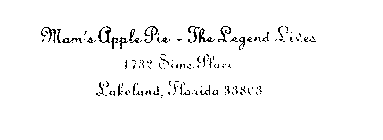 Mom's Apple Pie - The Legend Lives
1732 Sims Place
Lakeland, Florida 33803